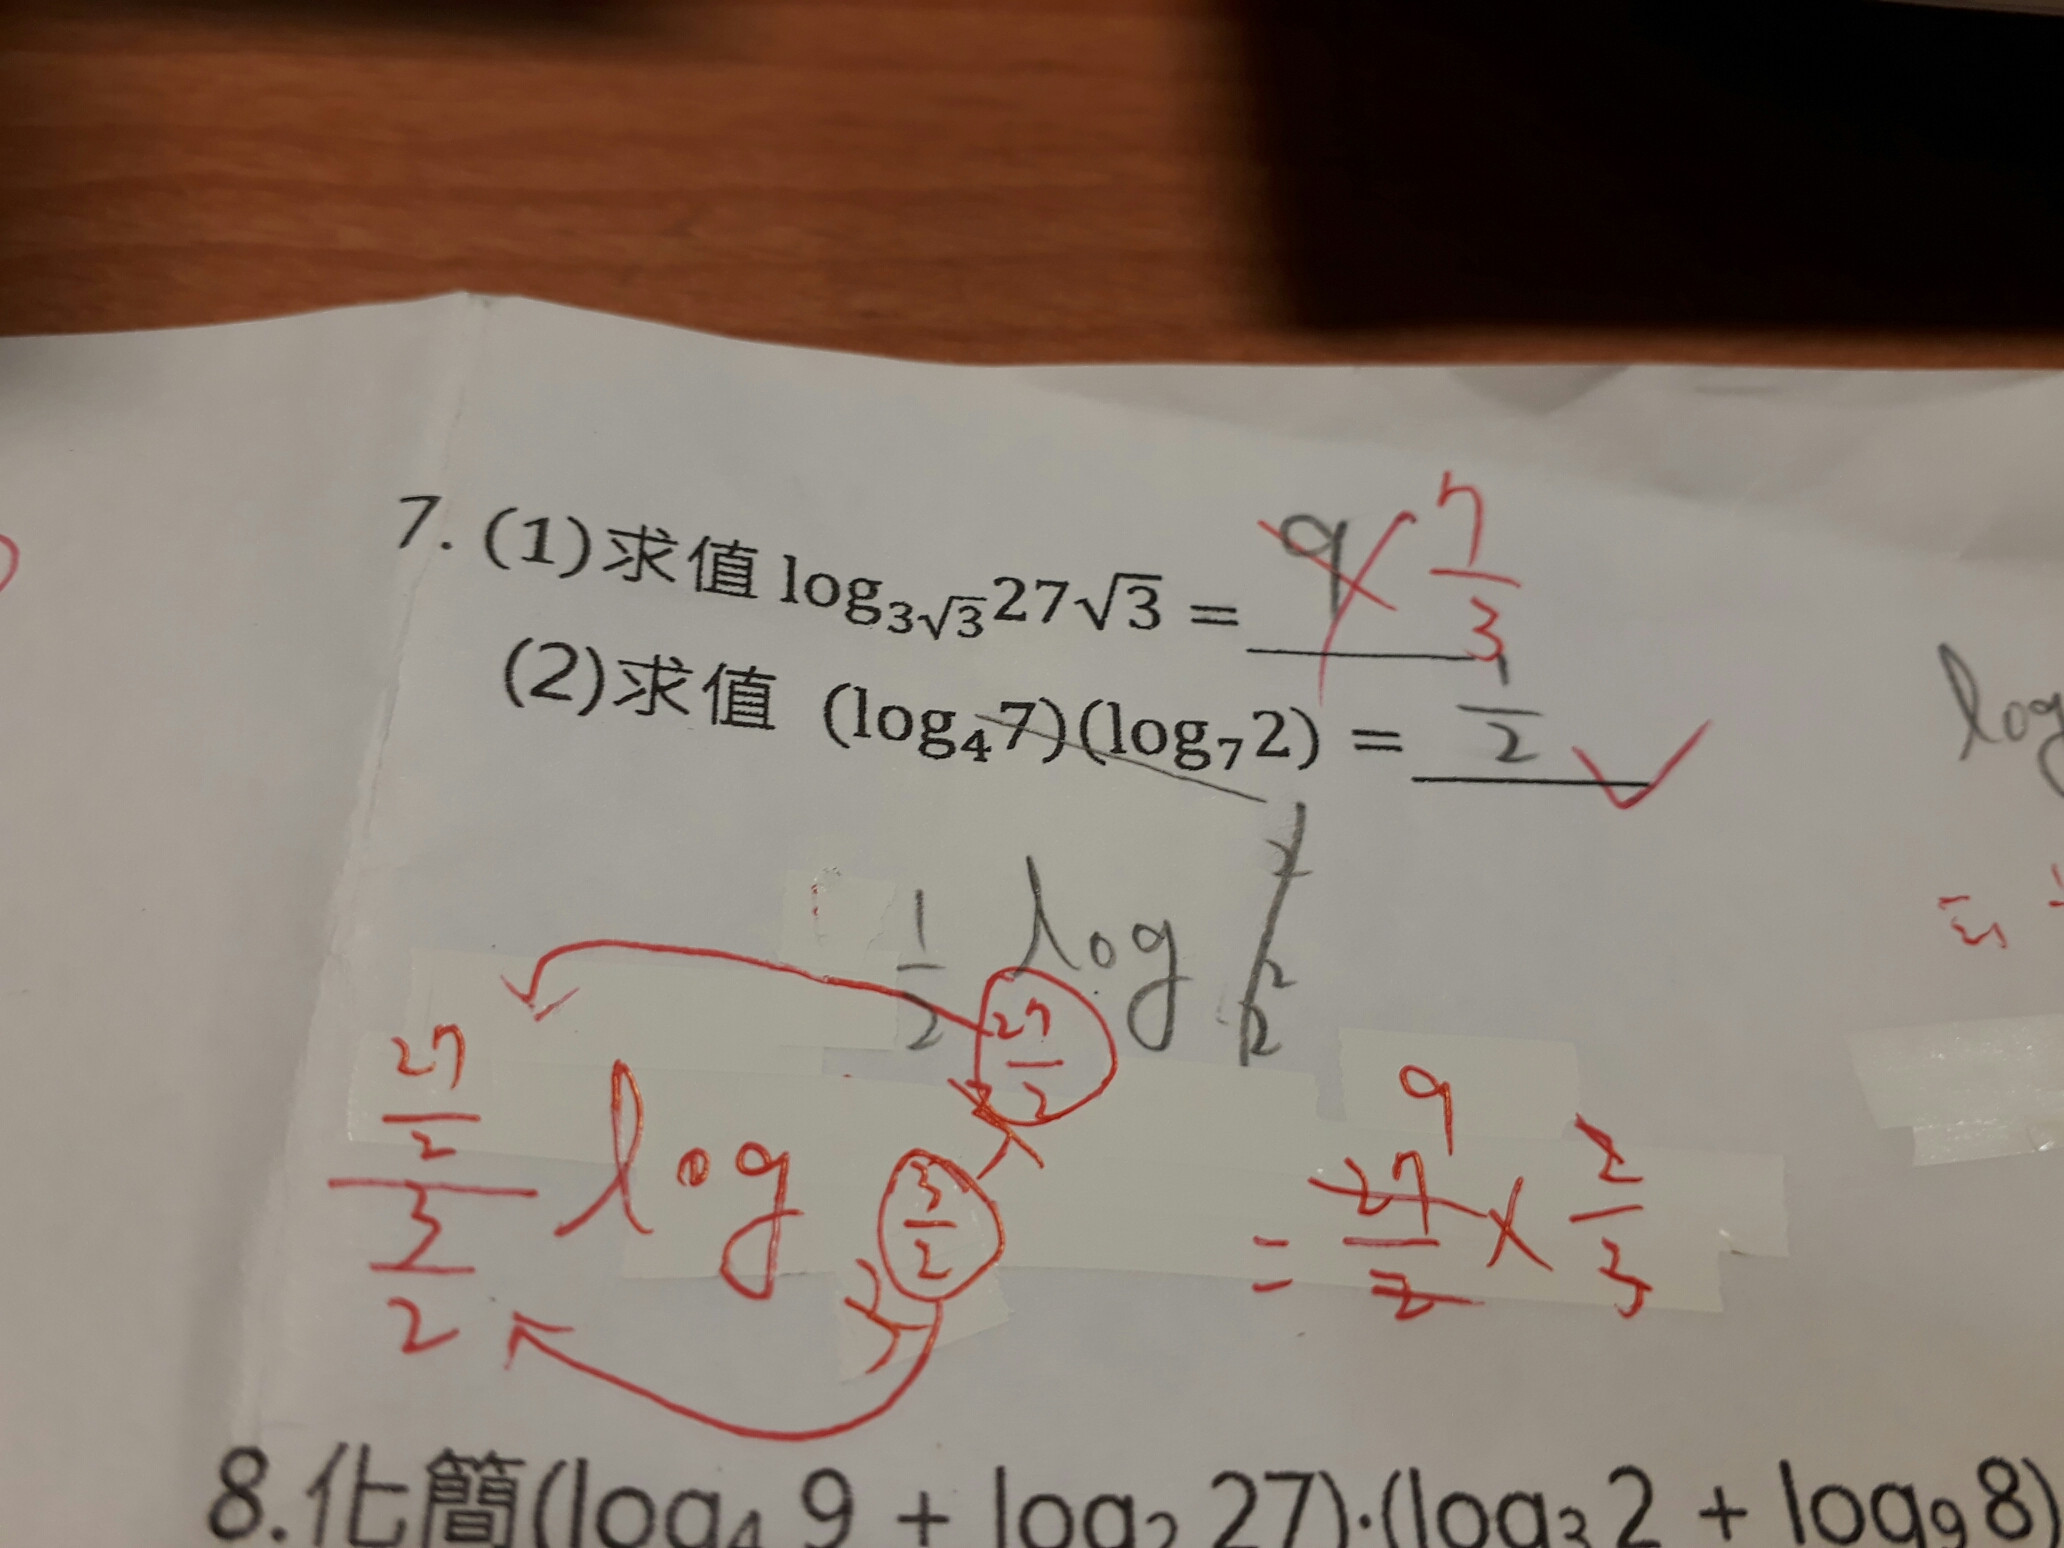 7. (1)求值 log₃√₃27√3 = 9 7/3
(2)求值 (log₄7)(log₇2) = 1/2
log
1/2 log 2 2²
27/2
27/2 / 3/2 log 3/2 = 27/2 9 × 2/3
8.化簡(log₄ 9 + log₂ 27)·(log₃ 2 + log₉ 8)